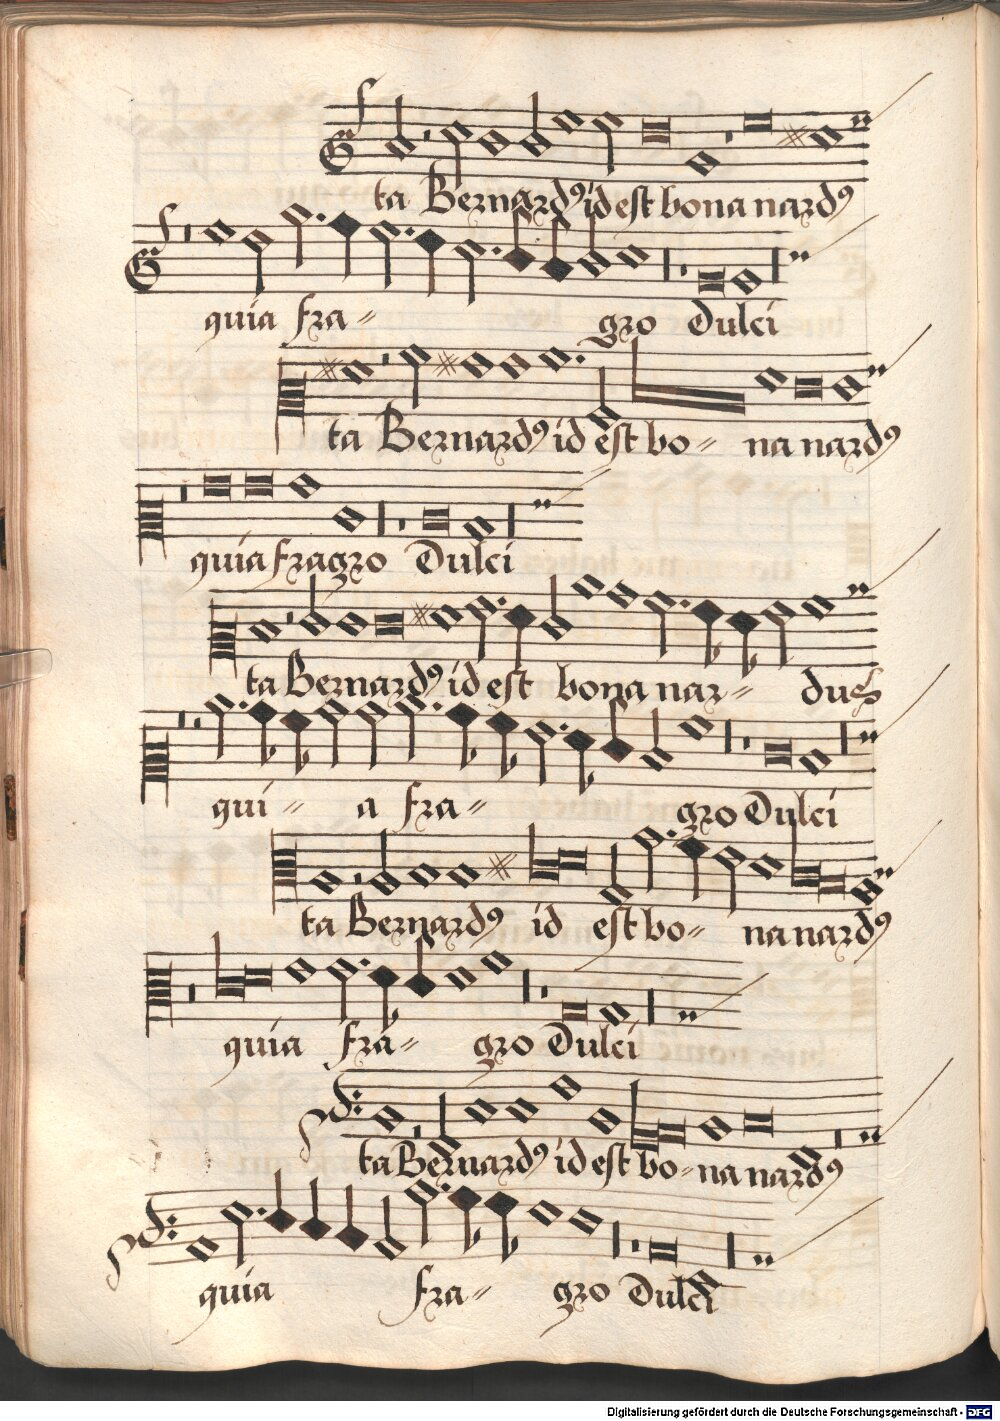 ta Bernardꝰ id est bona nardꝰ
quia fra= gro Dulci
ta Bernardꝰ id est bo= na nardꝰ
quia fragro Dulci
ta Bernardꝰ id est bona nar= dus
qui= a fra= gro Dulci
ta Bernardꝰ id est bo= na nardꝰ
quia fra= gro Dulci
ta Bernardꝰ id est bo= na nardꝰ
quia fra= gro Dulci
Digitalisierung gefördert durch die Deutsche Forschungsgemeinschaft - DFG